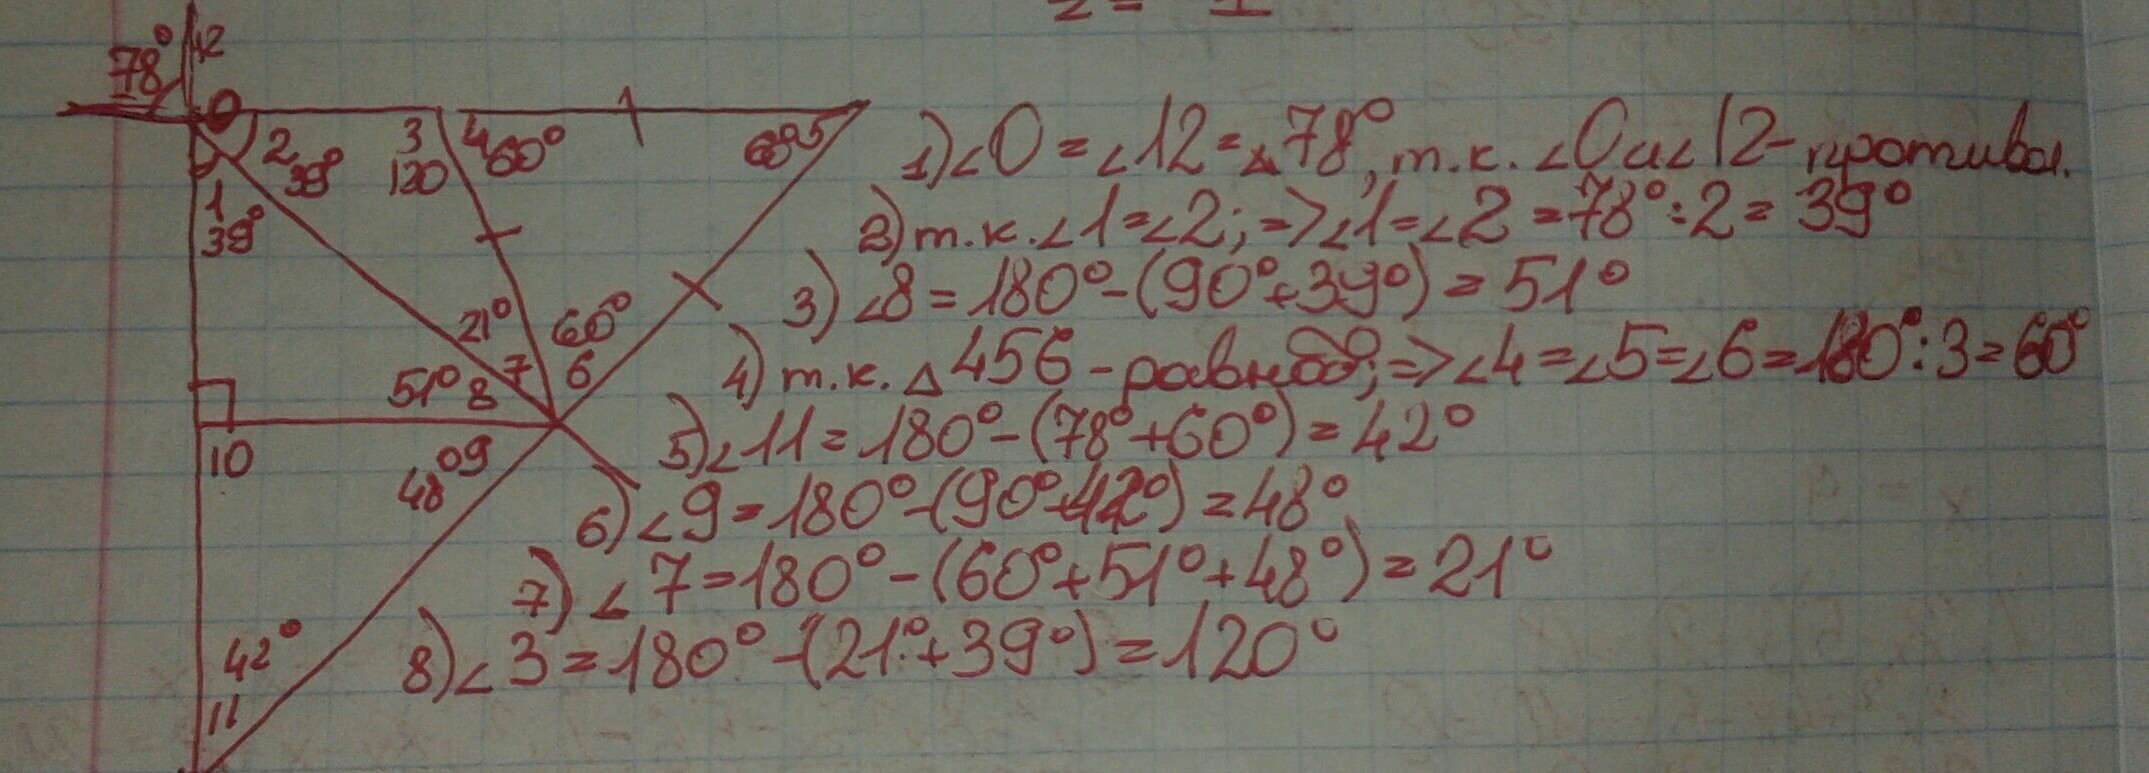 2 = 1
78° 12
0
2 39°
3 120
4 60°
60° 5
1 39°
21° 7
60° 6
51° 8
10
48° 9
42°
11
1) ∠0 = ∠12 = ∠78°, т.к. ∠0 и ∠12 - противопол.
2) т.к. ∠1 = ∠2; => ∠1 = ∠2 = 78° : 2 = 39°
3) ∠8 = 180° - (90° + 39°) = 51°
4) т.к. △456 - равноб; => ∠4 = ∠5 = ∠6 = 180° : 3 = 60°
5) ∠11 = 180° - (78° + 60°) = 42°
6) ∠9 = 180° - (90° + 42°) = 48°
7) ∠7 = 180° - (60° + 51° + 48°) = 21°
8) ∠3 = 180° - (21° + 39°) = 120°